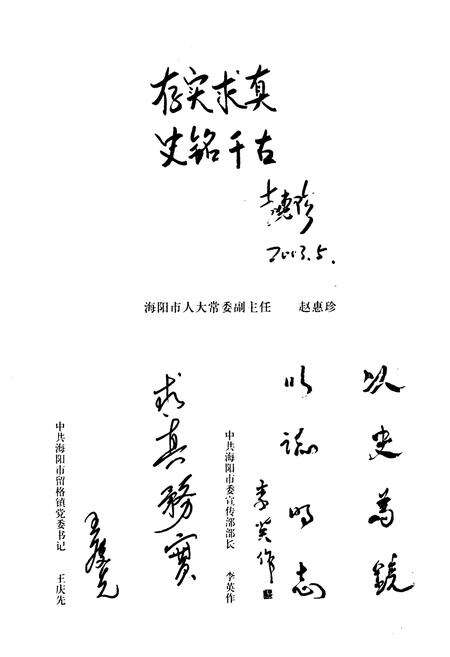 存实求真
史铭千古
赵惠珍
2003.5.
海阳市人大常委副主任 赵惠珍
以史為鏡
以誌明志
李英作
中共海阳市委宣传部部长 李英作
求真務實
王庆先
中共海阳市留格镇党委书记 王庆先